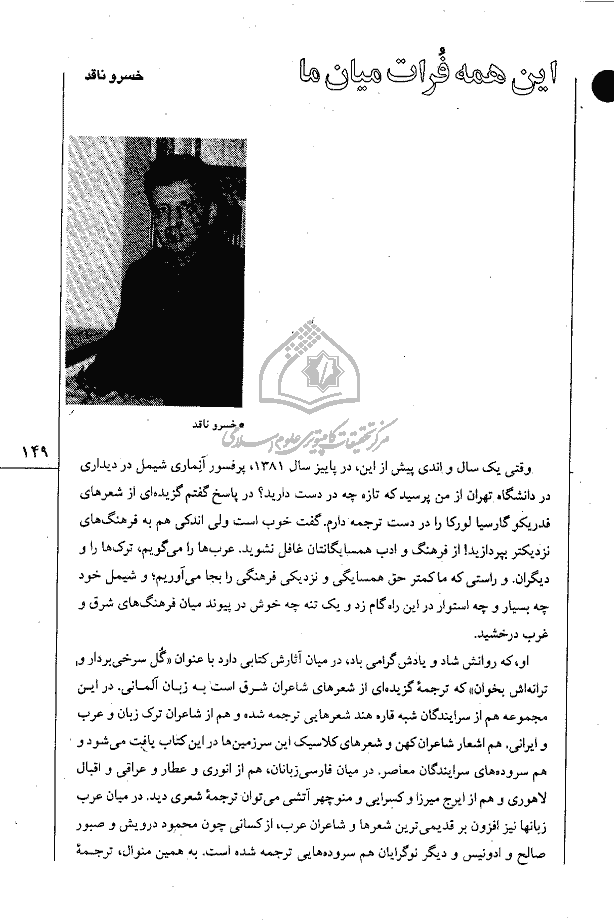 این همه فُرات میان ما
خسرو ناقد
• خسرو ناقد
مرکز تحقیقات کامپیوتری علوم اسلامی
۱۴۹
وقتی یک سال و اندی پیش از این، در پاییز سال ۱۳۸۱، پرفسور آنِماری شیمل در دیداری
در دانشگاه تهران از من پرسید که تازه چه در دست دارید؟ در پاسخ گفتم گزیده‌ای از شعرهای
فدریکو گارسیا لورکا را در دست ترجمه دارم. گفت خوب است ولی اندکی هم به فرهنگ‌های
نزدیکتر بپردازید! از فرهنگ و ادب همسایگانتان غافل نشوید. عرب‌ها را می‌گویم، ترک‌ها را و
دیگران. و راستی که ما کمتر حق همسایگی و نزدیکی فرهنگی را بجا می‌آوریم؛ و شیمل خود
چه بسیار و چه استوار در این راه گام زد و یک تنه چه خوش در پیوند میان فرهنگ‌های شرق و
غرب درخشید.
او، که روانش شاد و یادش گرامی باد، در میان آثارش کتابی دارد با عنوان «گُل سرخی بردار و
ترانه‌اش بخوان» که ترجمهٔ گزیده‌ای از شعرهای شاعران شرق است به زبان آلمانی. در این
مجموعه هم از سرایندگان شبه قاره هند شعرهایی ترجمه شده و هم از شاعران ترک زبان و عرب
و ایرانی. هم اشعار شاعران کهن و شعرهای کلاسیک این سرزمین‌ها در این کتاب یافت می‌شود و
هم سروده‌های سرایندگان معاصر. در میان فارسی‌زبانان، هم از انوری و عطار و عراقی و اقبال
لاهوری و هم از ایرج میرزا و کسرایی و منوچهر آتشی می‌توان ترجمهٔ شعری دید. در میان عرب
زبانها نیز افزون بر قدیمی‌ترین شعرها و شاعران عرب، از کسانی چون محمود درویش و صبور
صالح و ادونیس و دیگر نوگرایان هم سروده‌هایی ترجمه شده است. به همین منوال، ترجمهٔ